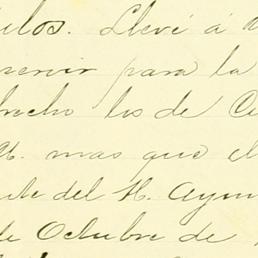 ulos. Llevé á
servir para la
recho los de
mas que el
te del H. Ayun
de Octubre de